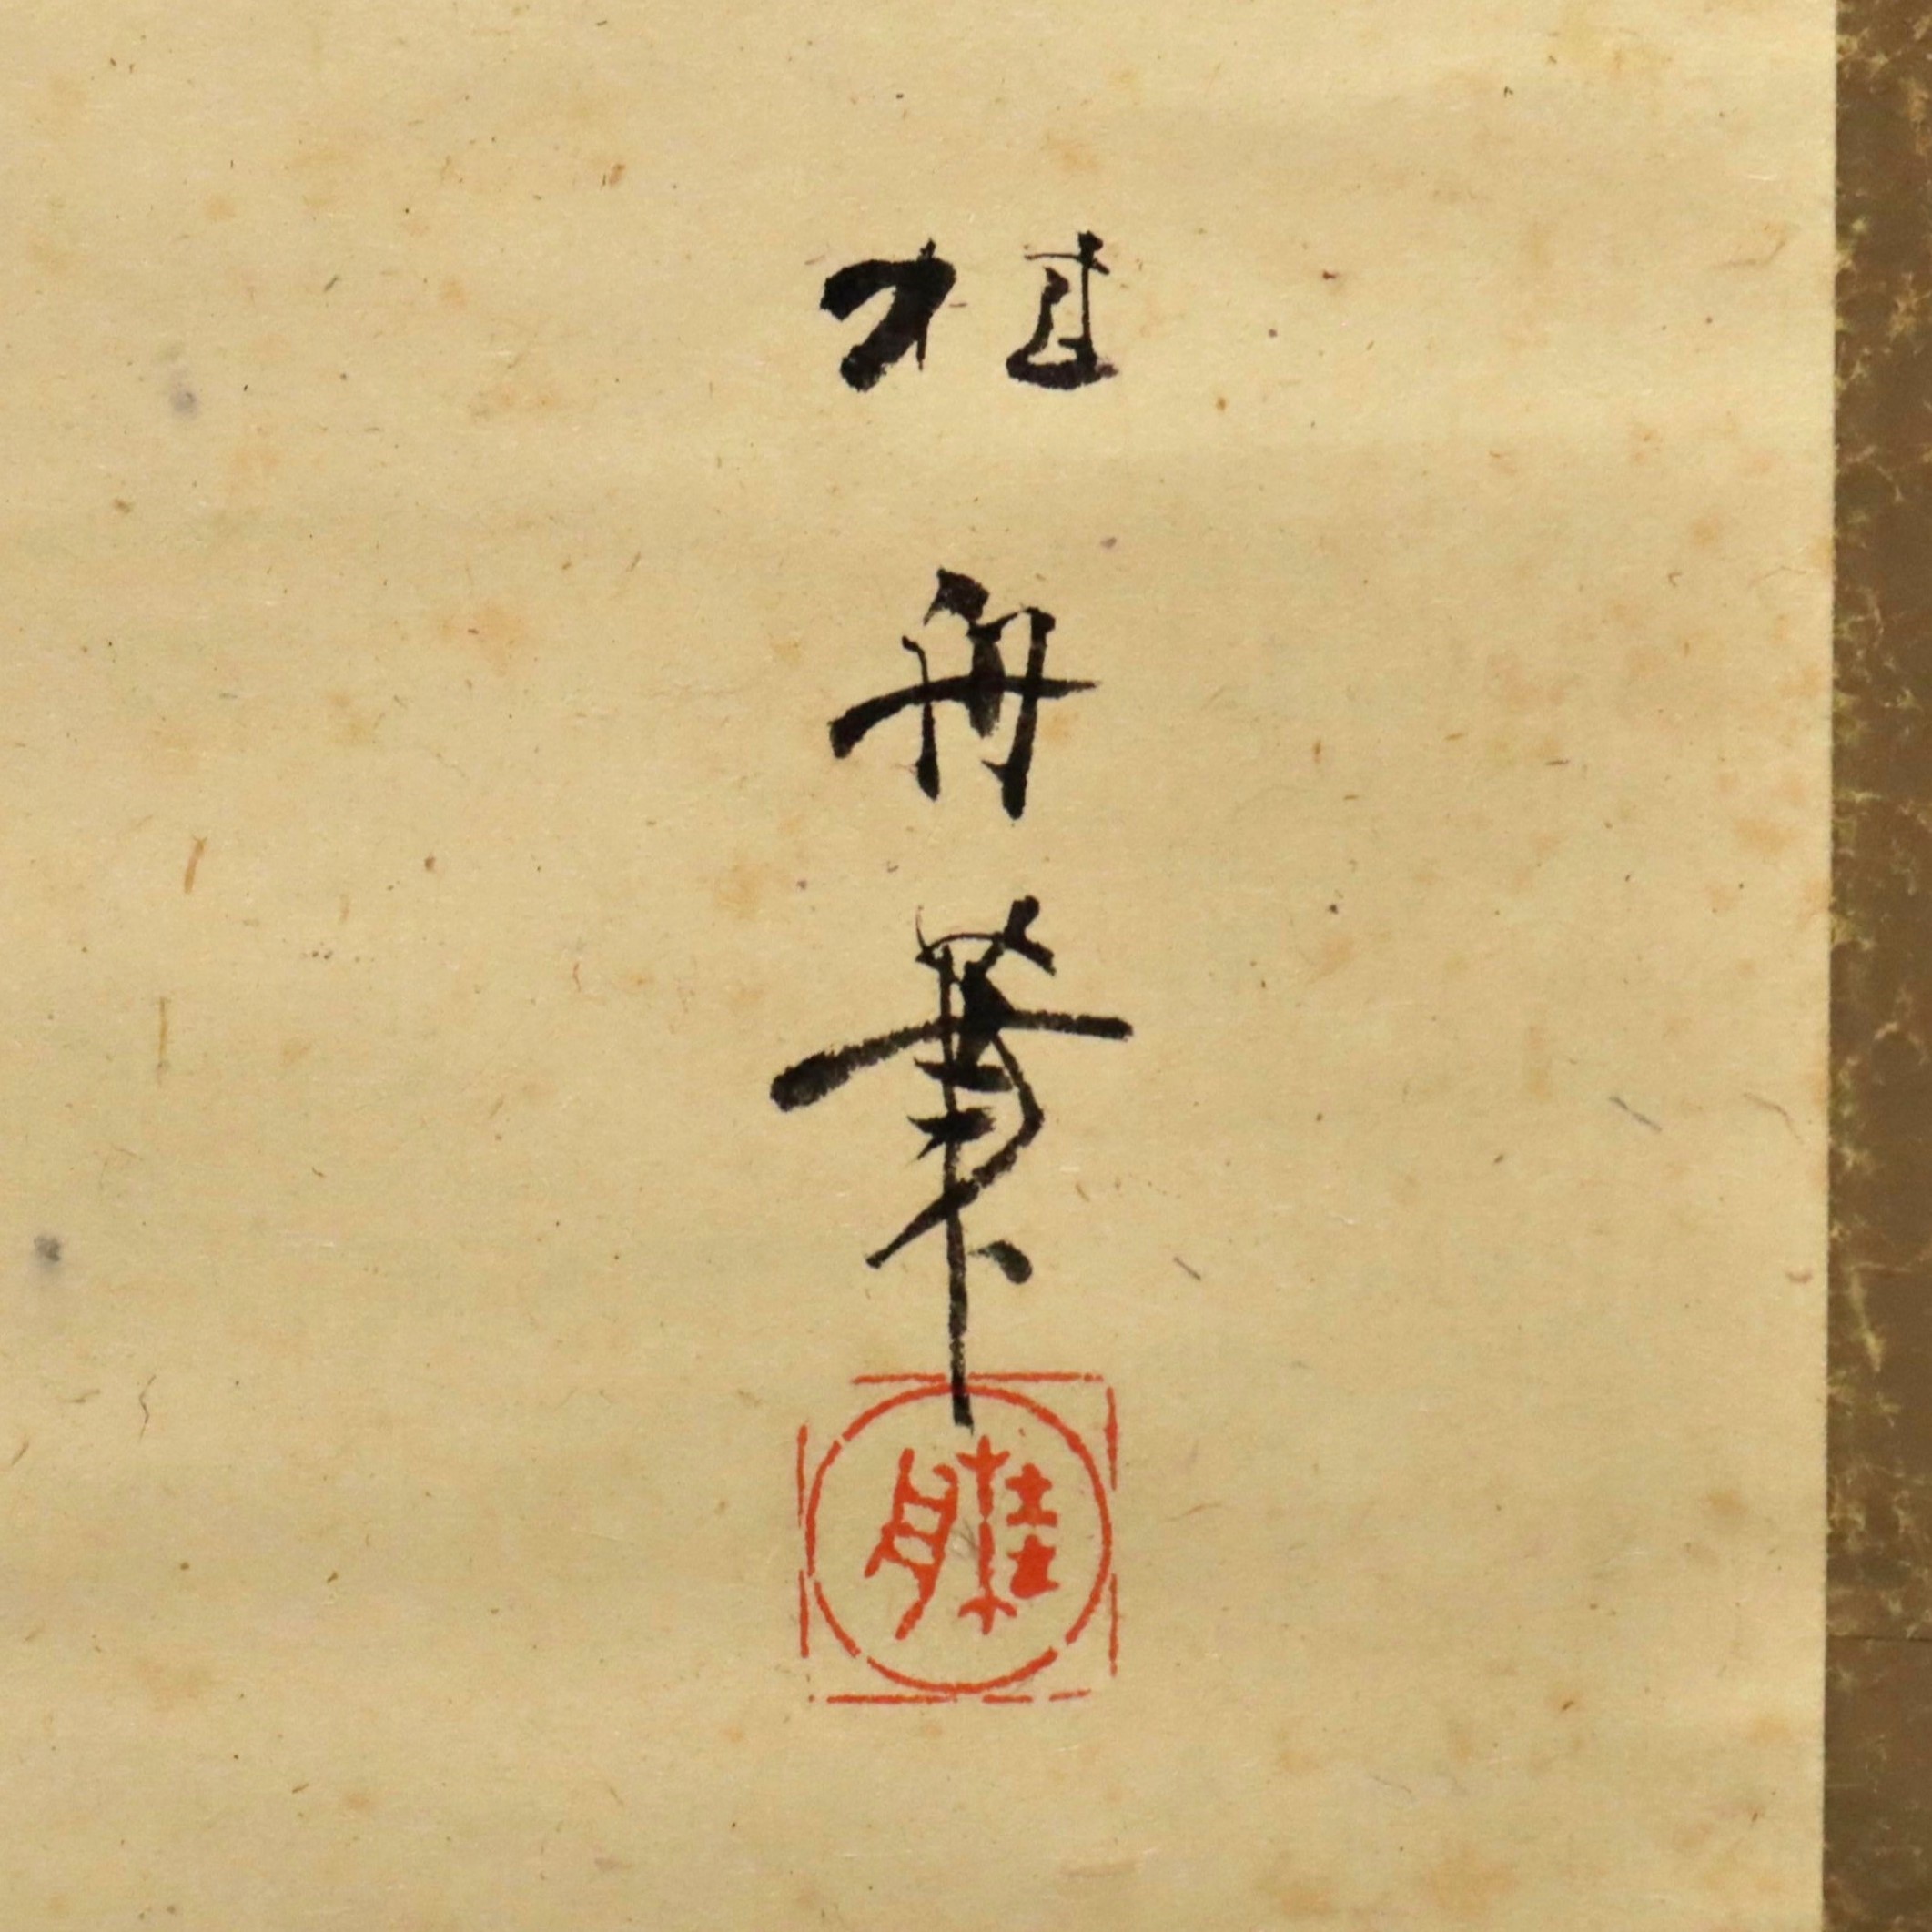 桂舟筆
桂舟